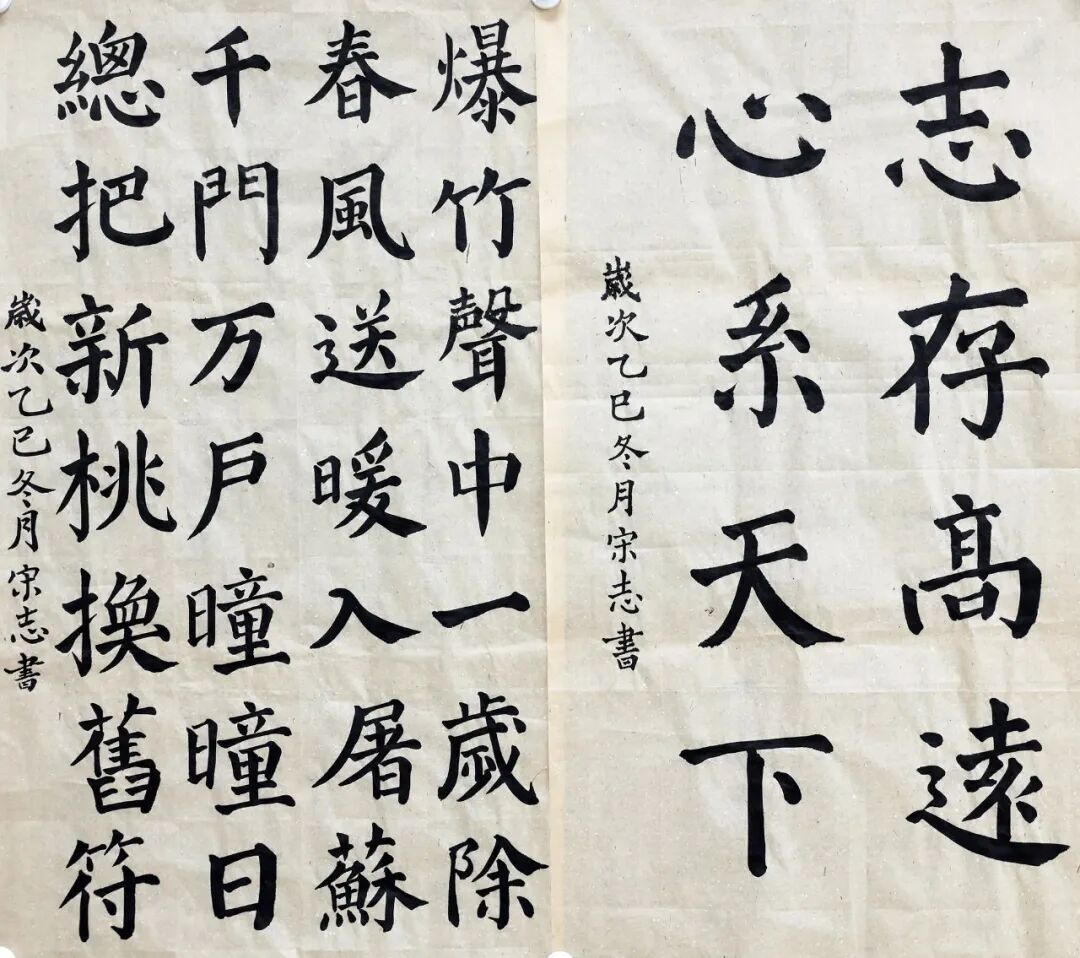 志存高遠
心系天下
歲次乙巳冬月宋志書
爆竹聲中一歲除
春風送暖入屠蘇
千門万戶曈曈日
總把新桃換舊符
歲次乙巳冬月宋志書